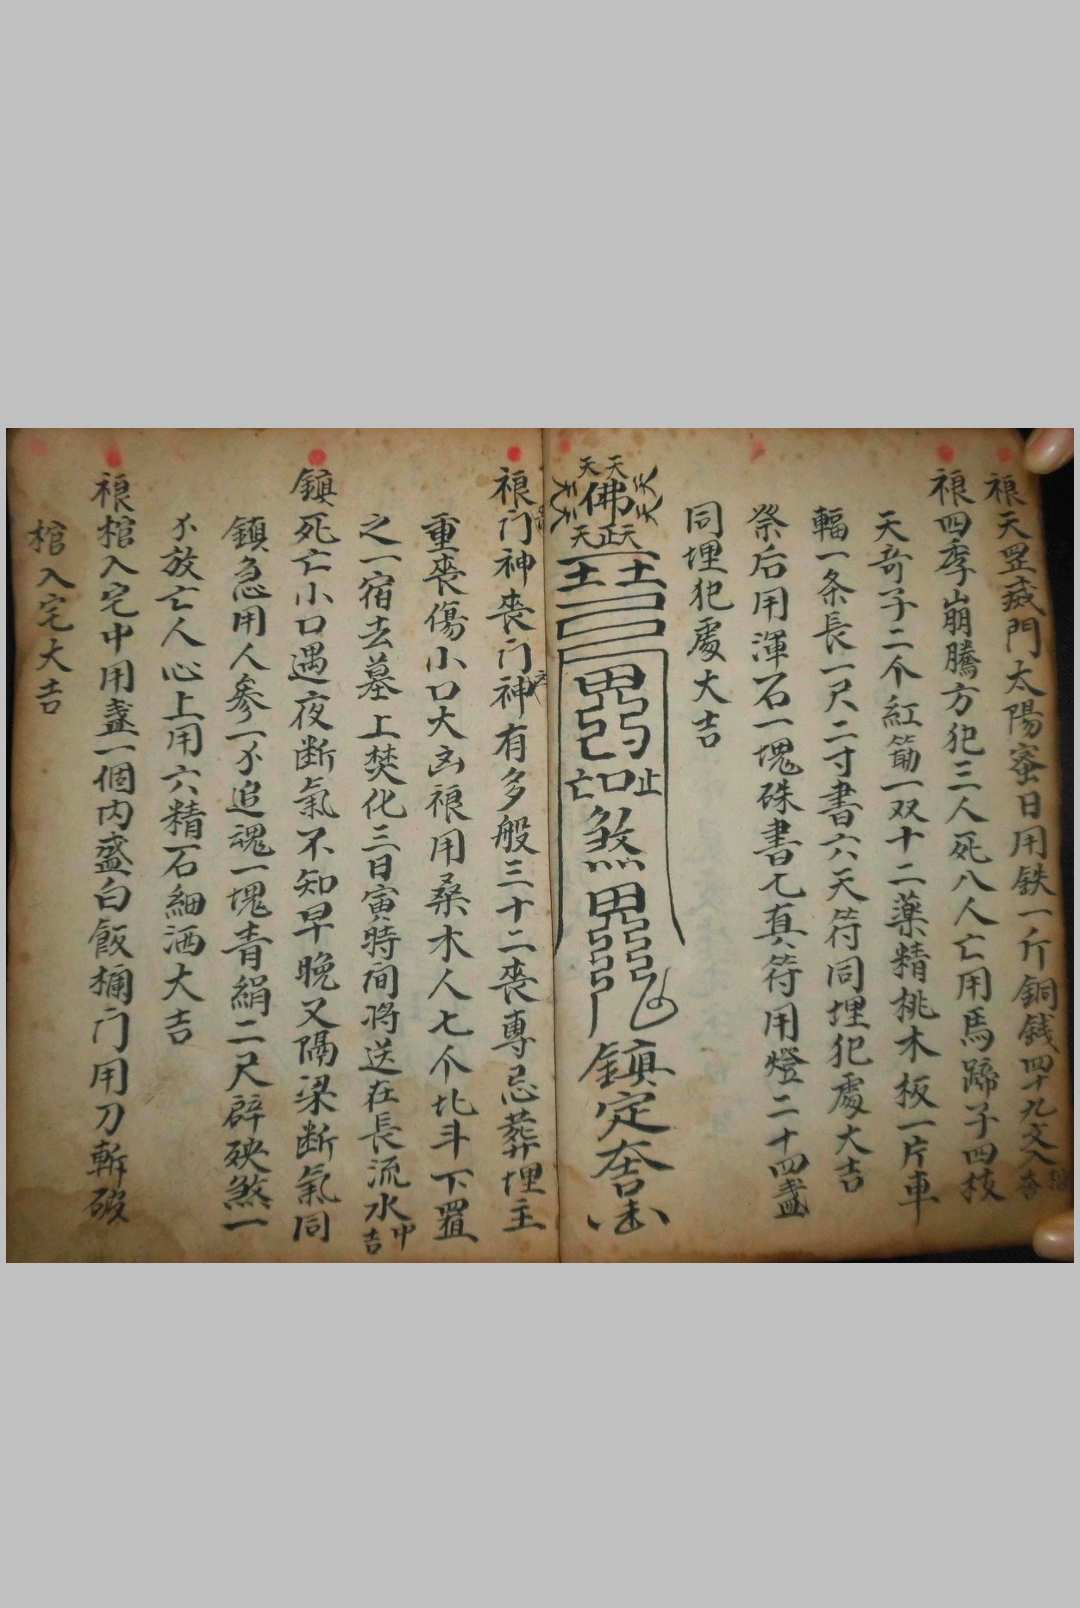 禳天罡戚門太陽蜜日用鉄一斤銅銭四十九文入吞
禳四季崩騰方犯三人死八人亡用馬蹄子四枝
天奇子二个紅筯一双十二薬精桃木板一片車
輻一条長一尺二寸書六天符同埋犯處大吉
祭后用渾石一塊硃書七真符用燈二十四盞
同埋犯處大吉
天天
佛
天正天
煞
鎮定
禳门神喪门神有多般三十二喪専忌葬埋主
重喪傷小口大凶禳用桑木人七个北斗下置
之一宿去墓上焚化三日寅時间将送在長流水中吉
鎮死亡小口遇夜断氣不知早晚又隔梁断氣同
鎮急用人參一不追魂一塊青絹二尺辟殃煞一
不放亡人心上用六精石細洒大吉
禳棺入宅中用盞一個内盛白飯桶门用刀斬破
棺入宅大吉